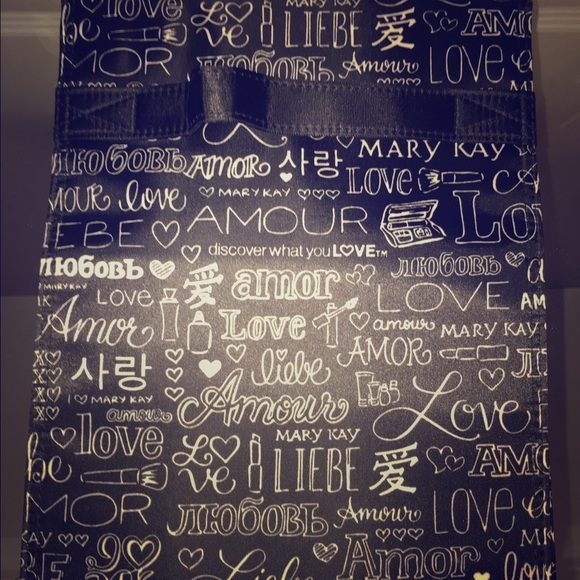 love Love MARY KAY 爱 AMOR
be LIEBE
MOR ЛЮБОВЬ Amour LOVE
ЛЮБОВЬ AMOR 사랑 MARY KAY
LOVE
MOUR love MARY KAY AMOUR Lo
EBE discover what you LOVE™
ЛЮБОВЬ ЛЮБОВЬ
MARY KAY LOVE 爱 amor LOVE AM
Amor Love amour MARY KAY
AMOR ЛЮ
XO 사랑 liebe
XO
XO I MARY KAY Amour Love
amour
love Love MARY KAY 爱 AMO
be LIEBE
MOR ЛЮБОВЬ Amour LOVE
MARY KAY
Liebe Amor